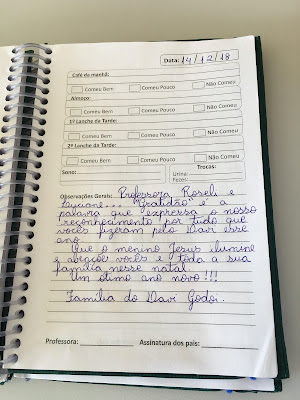 Data: 14/12/18
Café da manhã:
Comeu Bem Comeu Pouco Não Comeu
Almoço:
Comeu Bem Comeu Pouco Não Comeu
1º Lanche da Tarde:
Comeu Bem Comeu Pouco Não Comeu
2º Lanche da Tarde:
Comeu Bem Comeu Pouco Não Comeu
Sono: Trocas:
Urina:
Fezes:
Observações Gerais: Professora Roseli e
... "Gratidão" é a
palavra que expressa o nosso
reconhecimento por tudo que
vocês fizeram pelo Davi esse
ano.
Que o menino Jesus ilumine
e abençoe vocês e toda a sua
família nesse natal.
Um ótimo ano novo!!!
Família do Davi Godoi.
Professora: Assinatura dos pais: